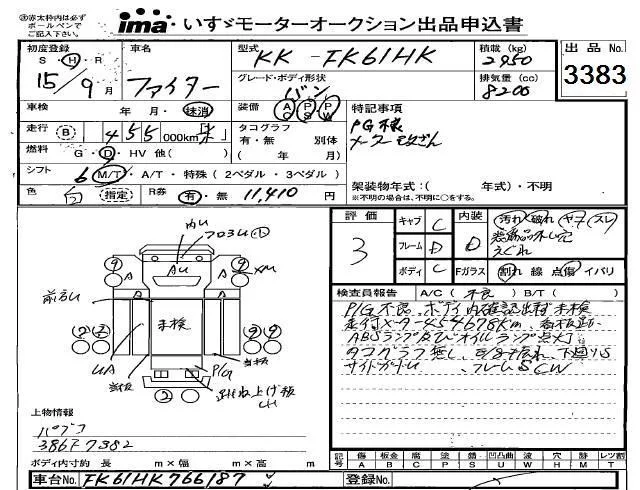 ※赤太枠内は必ず
ボールペンで
ご記入下さい。
ima いすゞモーターオークション出品申込書
初度登録 車名 型式 積載 (kg) 出品No.
S・H・R
15年9月 ファイター KK-FK61HK 2950 3383
グレード・ボディ形状 排気量 (cc)
バン 8200
車検 年 月・抹消 装備 AC PS PW 特記事項
走行 B 455,000km タコグラフ PG不良
有・無 別体 メーター改ざん
燃料 G・D・HV 他( ) ( 年 月)
シフト 6 M/T・A/T・特殊(2ペダル・3ペダル)
架装物年式:( 年式)・不明
※不明の場合は、不明に○をする。
色 白 指定 R券 有・無 11,410円
評価 キャブ C 内装 汚れ 破れ ヤケ スレ
3 フレーム D D 装備品外し穴
えぐれ
ボディ C Fガラス 割れ 線 点傷 イバリ
検査員報告 A/C(不良) B/T( )
P/G不良、ボディ内確認出来ず未検
走行メーター454678km、
ABSランプ及びオイルランプ点灯
タコグラフ無し、下廻りS
フレームSCW
内U
フロアU 小
AU
9 9
A A
前U
未検
UA
P/G
跳ね上げ板
LH
2
上物情報
パブコ
3867382
ボディ内寸約 長 m×幅 m×高 m
記号 傷 板金 腐 塗 錆 凹凸曲 波 穴 跡 レツ割
A B C P S U W H M T
車台No. FK61HK766187 登録No.